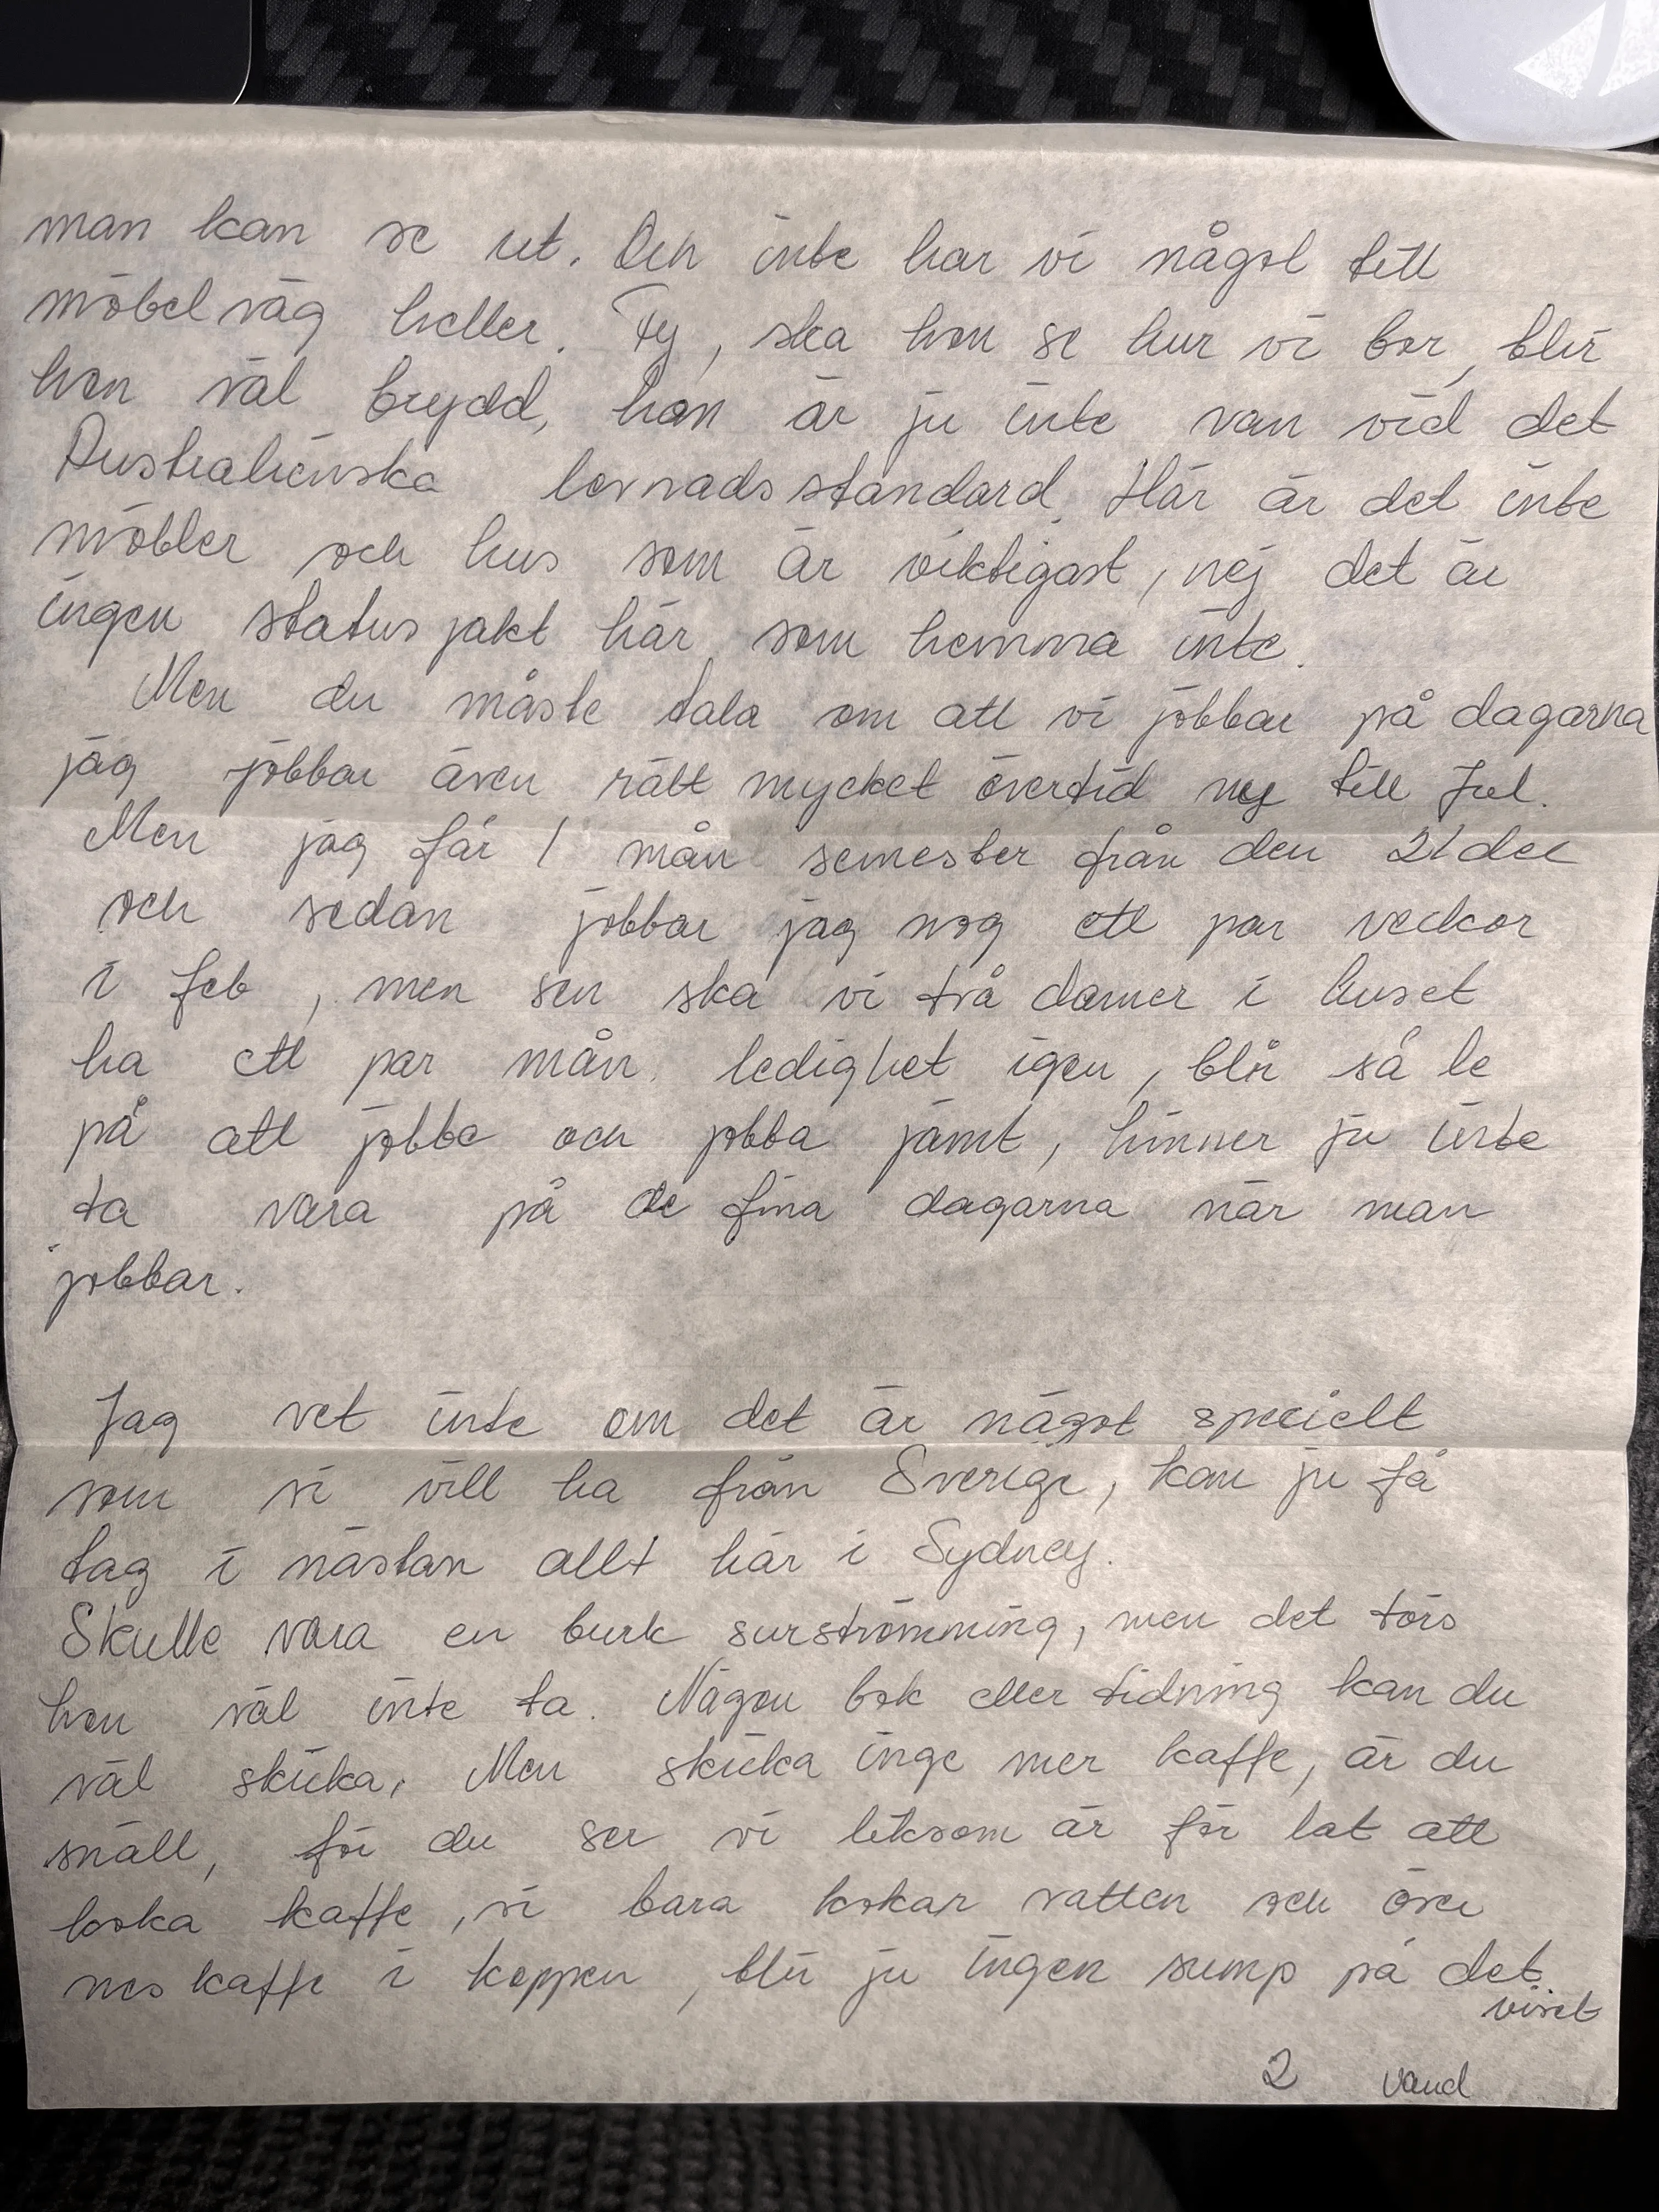 man kan se ut. Och inte har vi något till
möbelväg heller. Fy, ska hon se hur vi bor, blir
hon väl brydd, hon är ju inte van vid det
Australienska levnadsstandard. Här är det inte
möbler och hus som är viktigast, nej det är
ingen statusjakt här som hemma inte.
Men du måste tala om att vi jobbar på dagarna
jag jobbar även rätt mycket övertid till Jul.
Men jag får 1 mån semester från den 21 dec
och sedan jobbar jag nog ett par veckor
i feb, men sen ska vi två damer i huset
ha ett par mån. ledighet igen, blir så le
på att jobba och jobba jämt, hinner ju inte
ta vara på de fina dagarna när man
jobbar.
Jag vet inte om det är något speciellt
som vi vill ha från Sverige, kan ju få
tag i nästan allt här i Sydney.
Skulle vara en burk surströmming, men det törs
hon väl inte ta. Någon bok eller tidning kan du
väl skicka. Men skicka inge mer kaffe, är du
snäll, för du ser vi liksom är för lat att
koka kaffe, vi bara kokar vatten och öser
neskaffe i koppen, blir ju ingen sump på det
viset
2 vänd